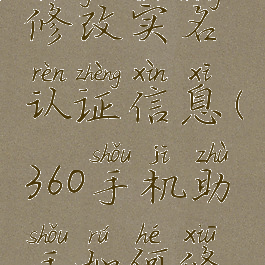 修改实名
rèn zhèng xìn xī
认证信息(
shǒu jī zhù
360手机助
shǒu rú hé xiū
手如何修